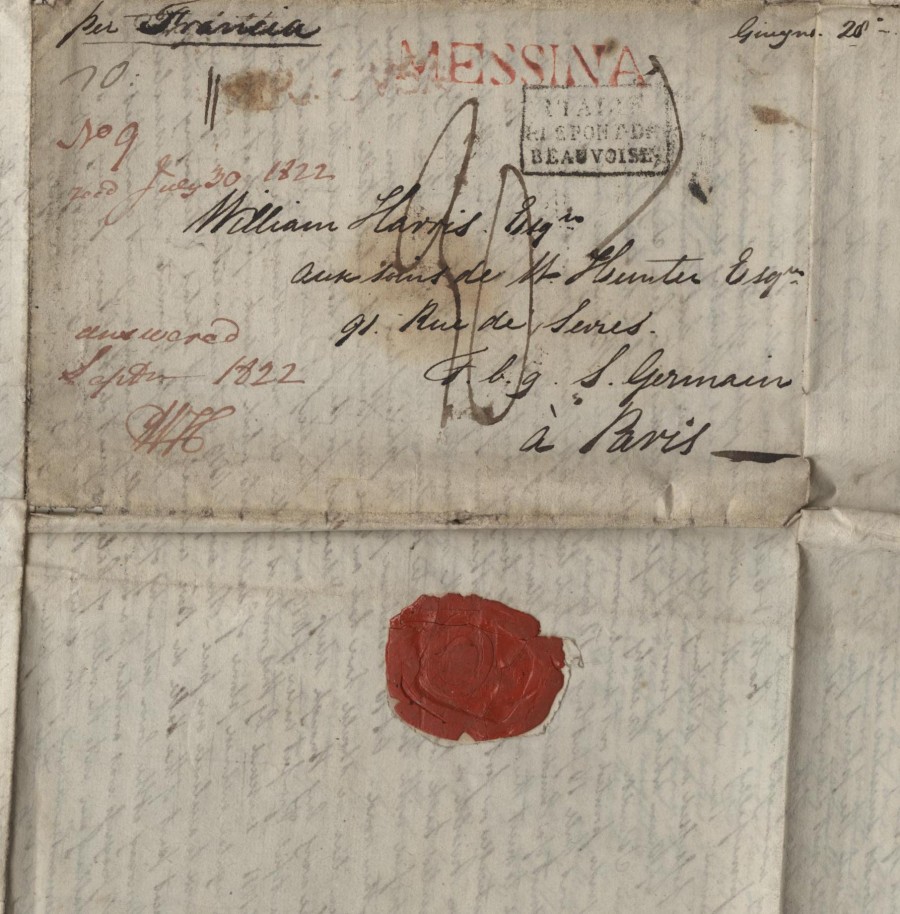 per Francia
Giugno. 28
MESSINA
10:
ITALIE
PAR LE PONT-DE-
BEAUVOISIN
No 9
recd July 30 1822
William Harris Esqre
aux soins de W. Hunter Esqre
91. Rue de Sevres.
F. b. g. S. Germain
à Paris
answered
Septr 1822
WH